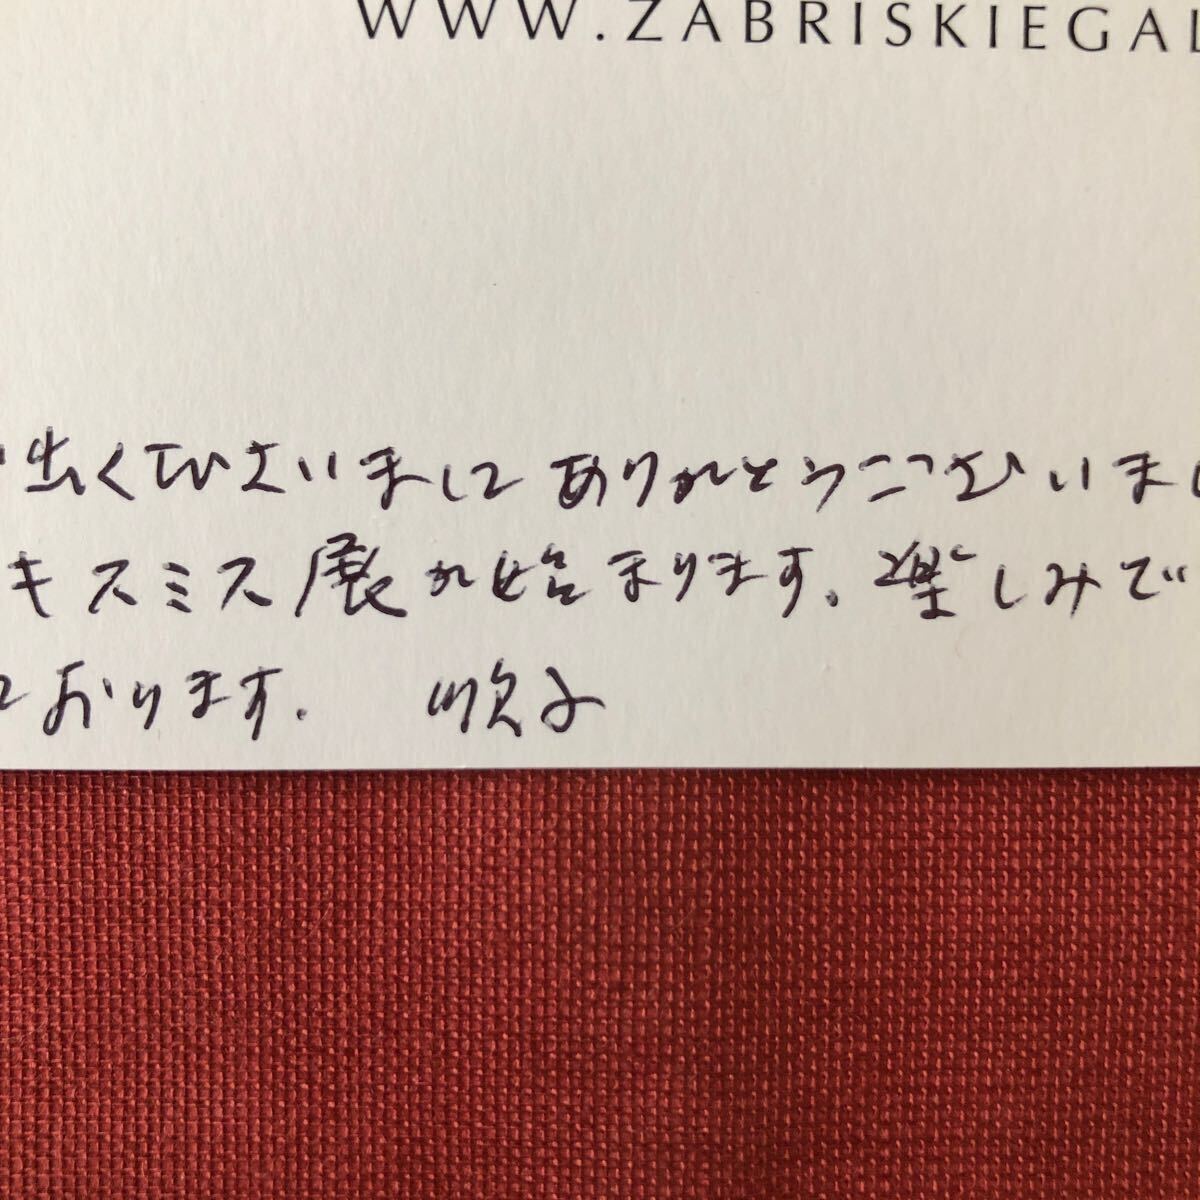 WWW.ZABRISKIEGAL
出くださいまして ありがとうございまし
キスミス展が始まります。楽しみで
ております。 順子